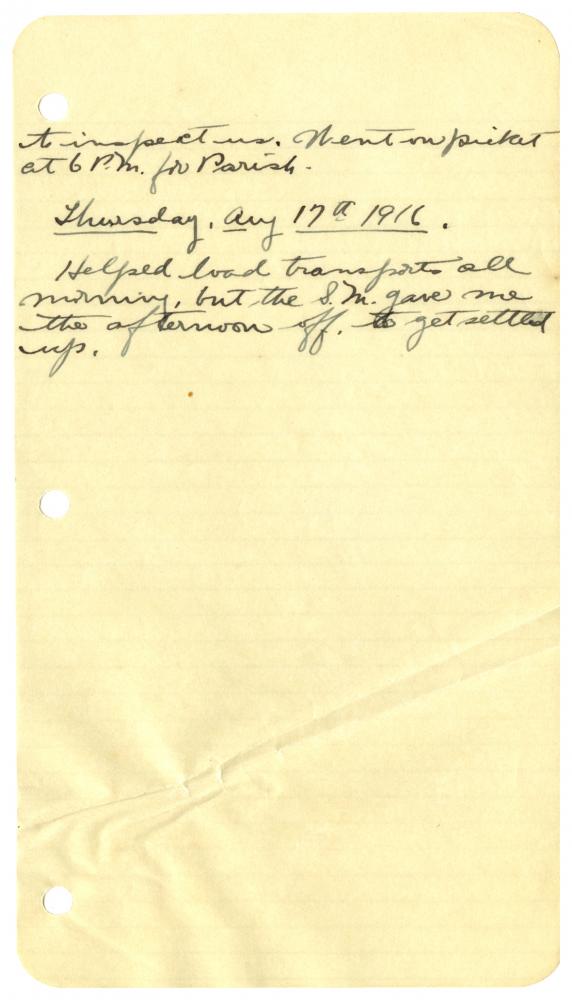 to inspect us. Went on picket
at 6 P.M. for Parish.
Thursday, Aug 17th 1916.
Helped load transports all
morning, but the S.M. gave me
the afternoon off, to get settled
up.